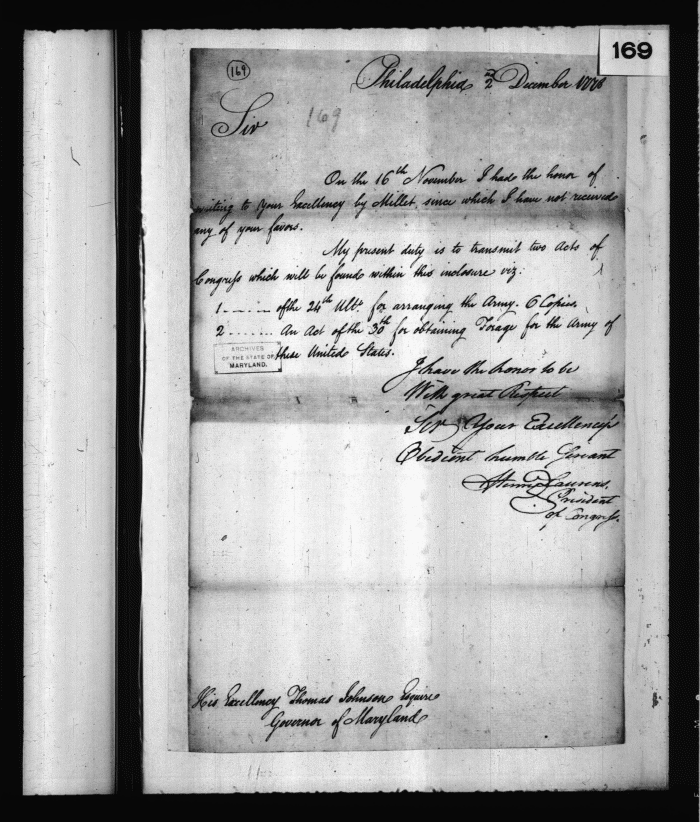 169
169
Philadelphia 2nd December 1778
Sir
169
On the 16th November I had the honor of
writing to Your Excellency by Millet, since which I have not received
any of your favors.
My present duty is to transmit two Acts of
Congress which will be found within this inclosure viz:
1 . . . . . . of the 24th Ulto. for arranging the Army. 6 Copies.
2 . . . . . . An Act of the 30th for obtaining Forage for the Army of
these United States.
ARCHIVES
OF THE STATE OF
MARYLAND.
I have the honor to be
With great Respect
Sir Your Excellency's
Obedient humble Servant
Henry Laurens.
President
of Congress.
His Excellency Thomas Johnson Esquire
Governor of Maryland